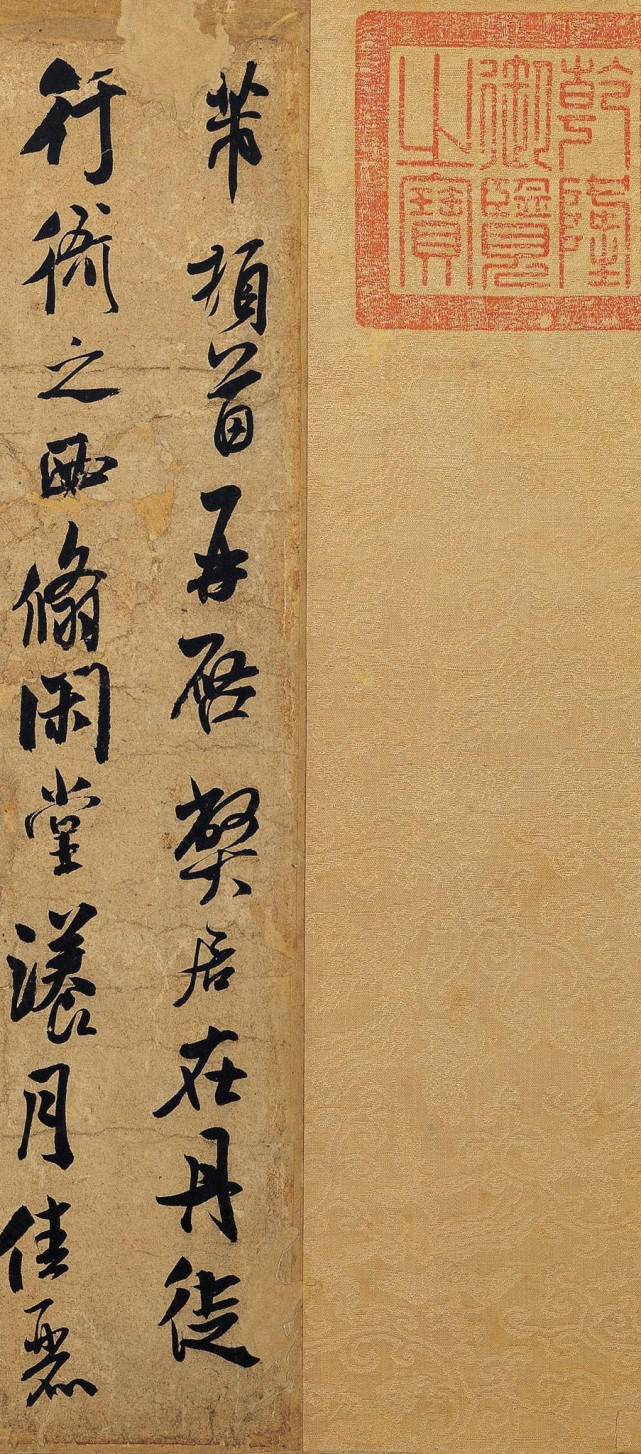 乾隆
御覽
之寶
芾頓首再啓獘居在丹徒
行衙之西翛閑堂漾月佳麗